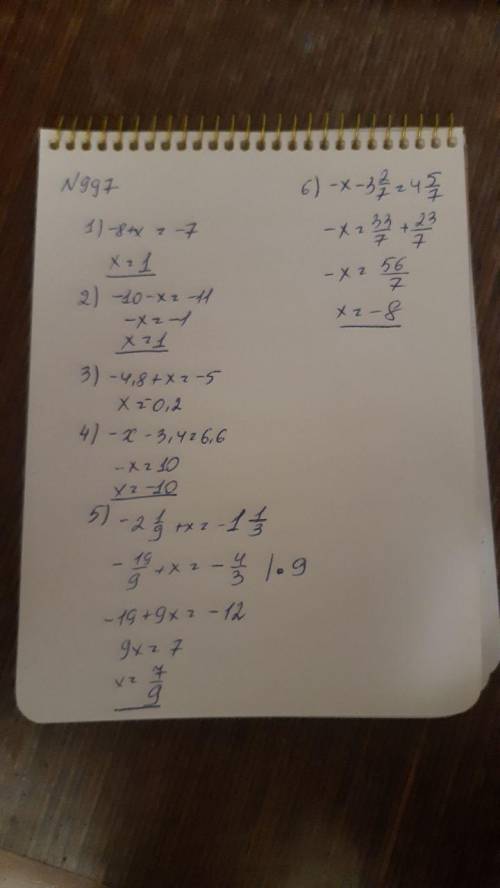 N997
1) -8+x = -7
x = 1
2) -10-x = -11
-x = -1
x = 1
3) -4,8+x = -5
x = 0,2
4) -x - 3,4 = 6,6
-x = 10
x = -10
5) -2 1/9 + x = -1 1/3
-19/9 + x = -4/3 | • 9
-19+9x = -12
9x = 7
x = 7/9
6) -x - 3 2/7 = 4 5/7
-x = 33/7 + 23/7
-x = 56/7
x = -8